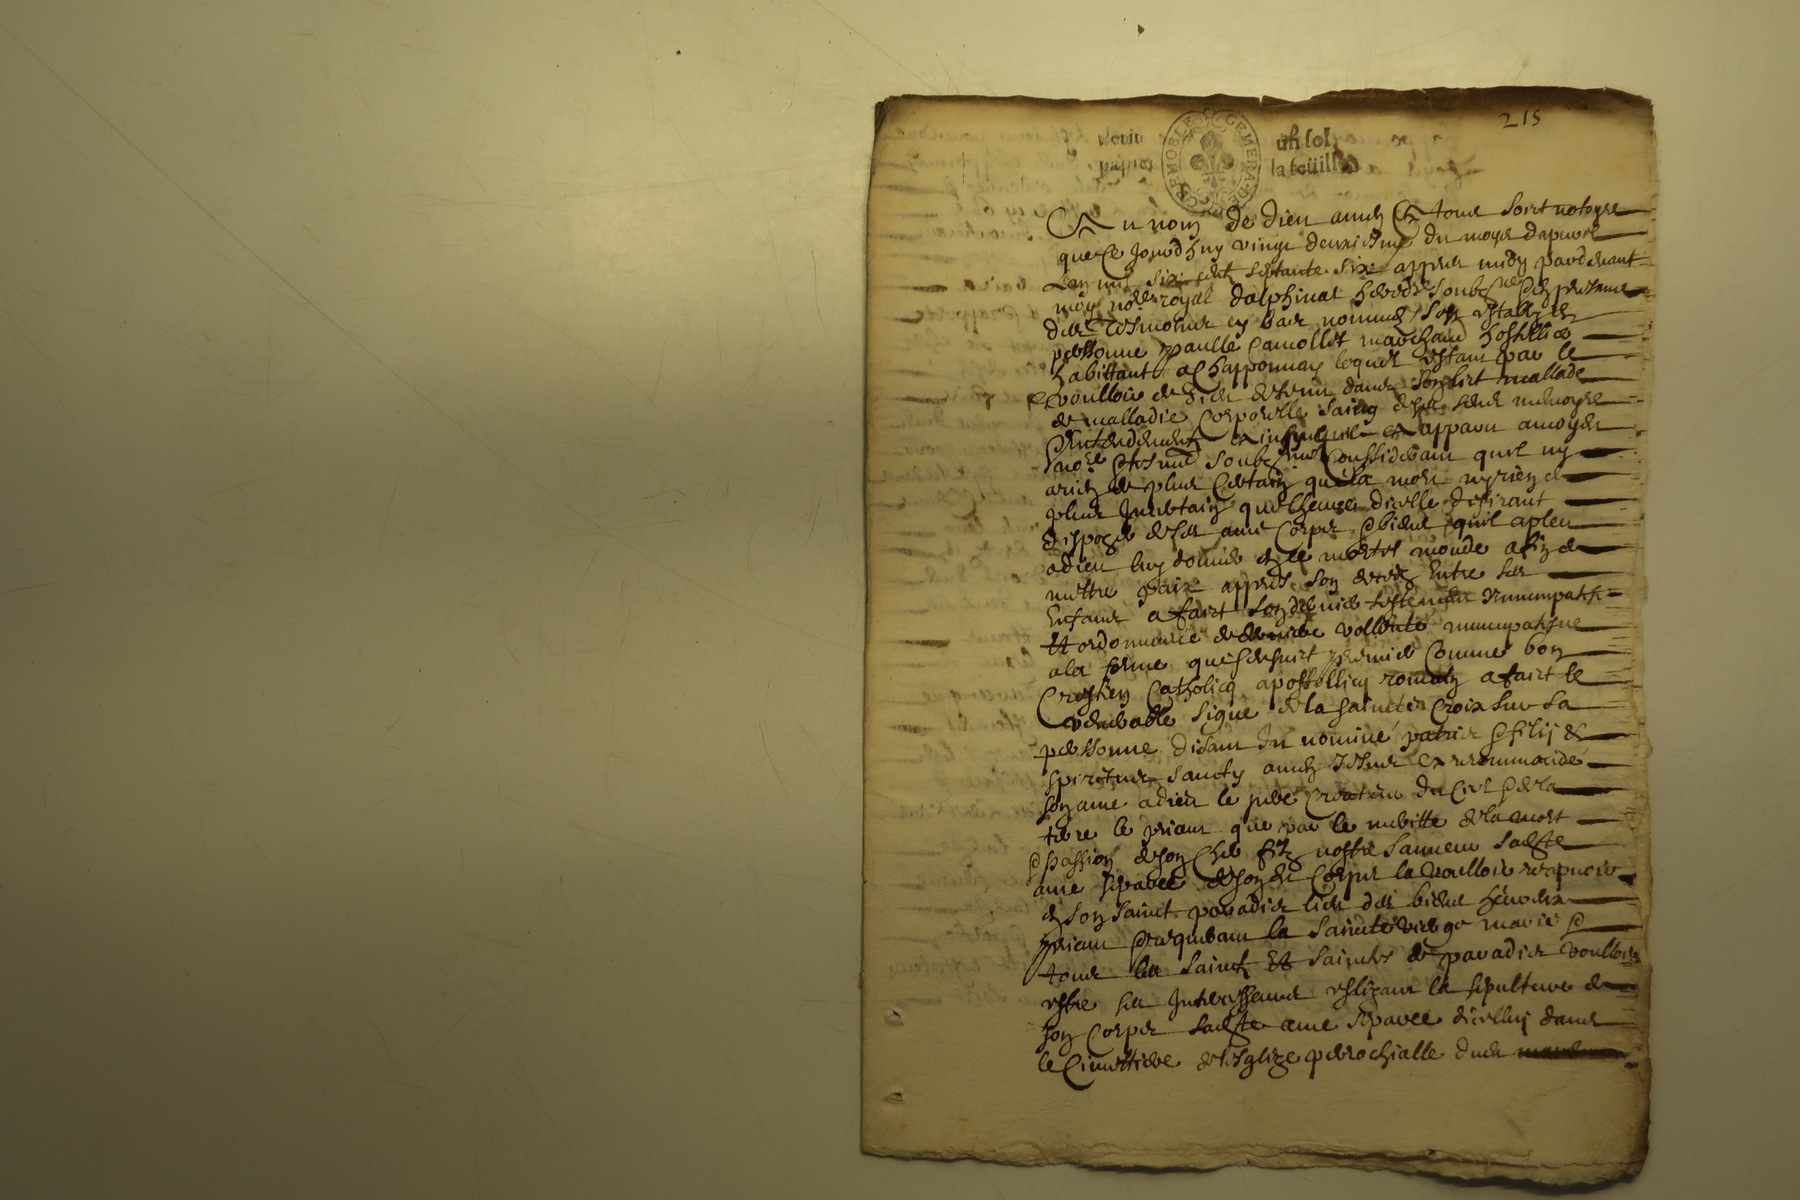 215
un sol
papier la feüille
GENERA DE GRENOBLE
Au nom de dieu amen A tous soict notoyre
que ce jourdhuy vingt deuxiesme du moys dapvril
Lan mil six cent septante six appres midy pardevant
moy nore royal dalphinal hered soubzne
des tesmoins en bas nommes sest estably en
personne paulle Camollet marchand hostellier
habittant a Chapponnay lequel estant par le
voulloir de dieu detenu dans son lict mallade
de malladie Corporelle sain de ses sens memoyre
Entendement et apparu a moydit
nore Considerant quil ny
a rien de plus Certain que la mort ny rien de
plus Incertain que lheure dicelle desirant
dispozer de ses ame Corps & biens quil a pleu
a dieu luy donner en ce mortel monde afin de
mettre paix appres son deces Entre ses
Enfans a faict son dernier testement nuncupatif
Et ordonnance de derniere vollonté nuncupatifve
a la forme que sensuict premier Comme bon
Crestien Catholicq apostollicq romain a faict le
venerable signe de la saincte Croix sur sa
personne disant In nomine patris & filij &
spirictus sancty amen Jesus et recommandé
son ame a dieu le pere Createur du Ciel & de la
terre le priant que par le meritte de la mort
& passion de son cher filz nostre sauveur ladte
ame separee de sondit Corps la voulloir recepvoir
en son sainct paradis lieu des biens heureux
priant & requerant la saincte vierge marie &
tous les saincts Et sainctes de paradis voulloir
estre ses Intercesseurs eslizant la sepulture de
son Corps ladte ame separee dicelluy dans
le Cimettiere de lesglize perrochialle dudt